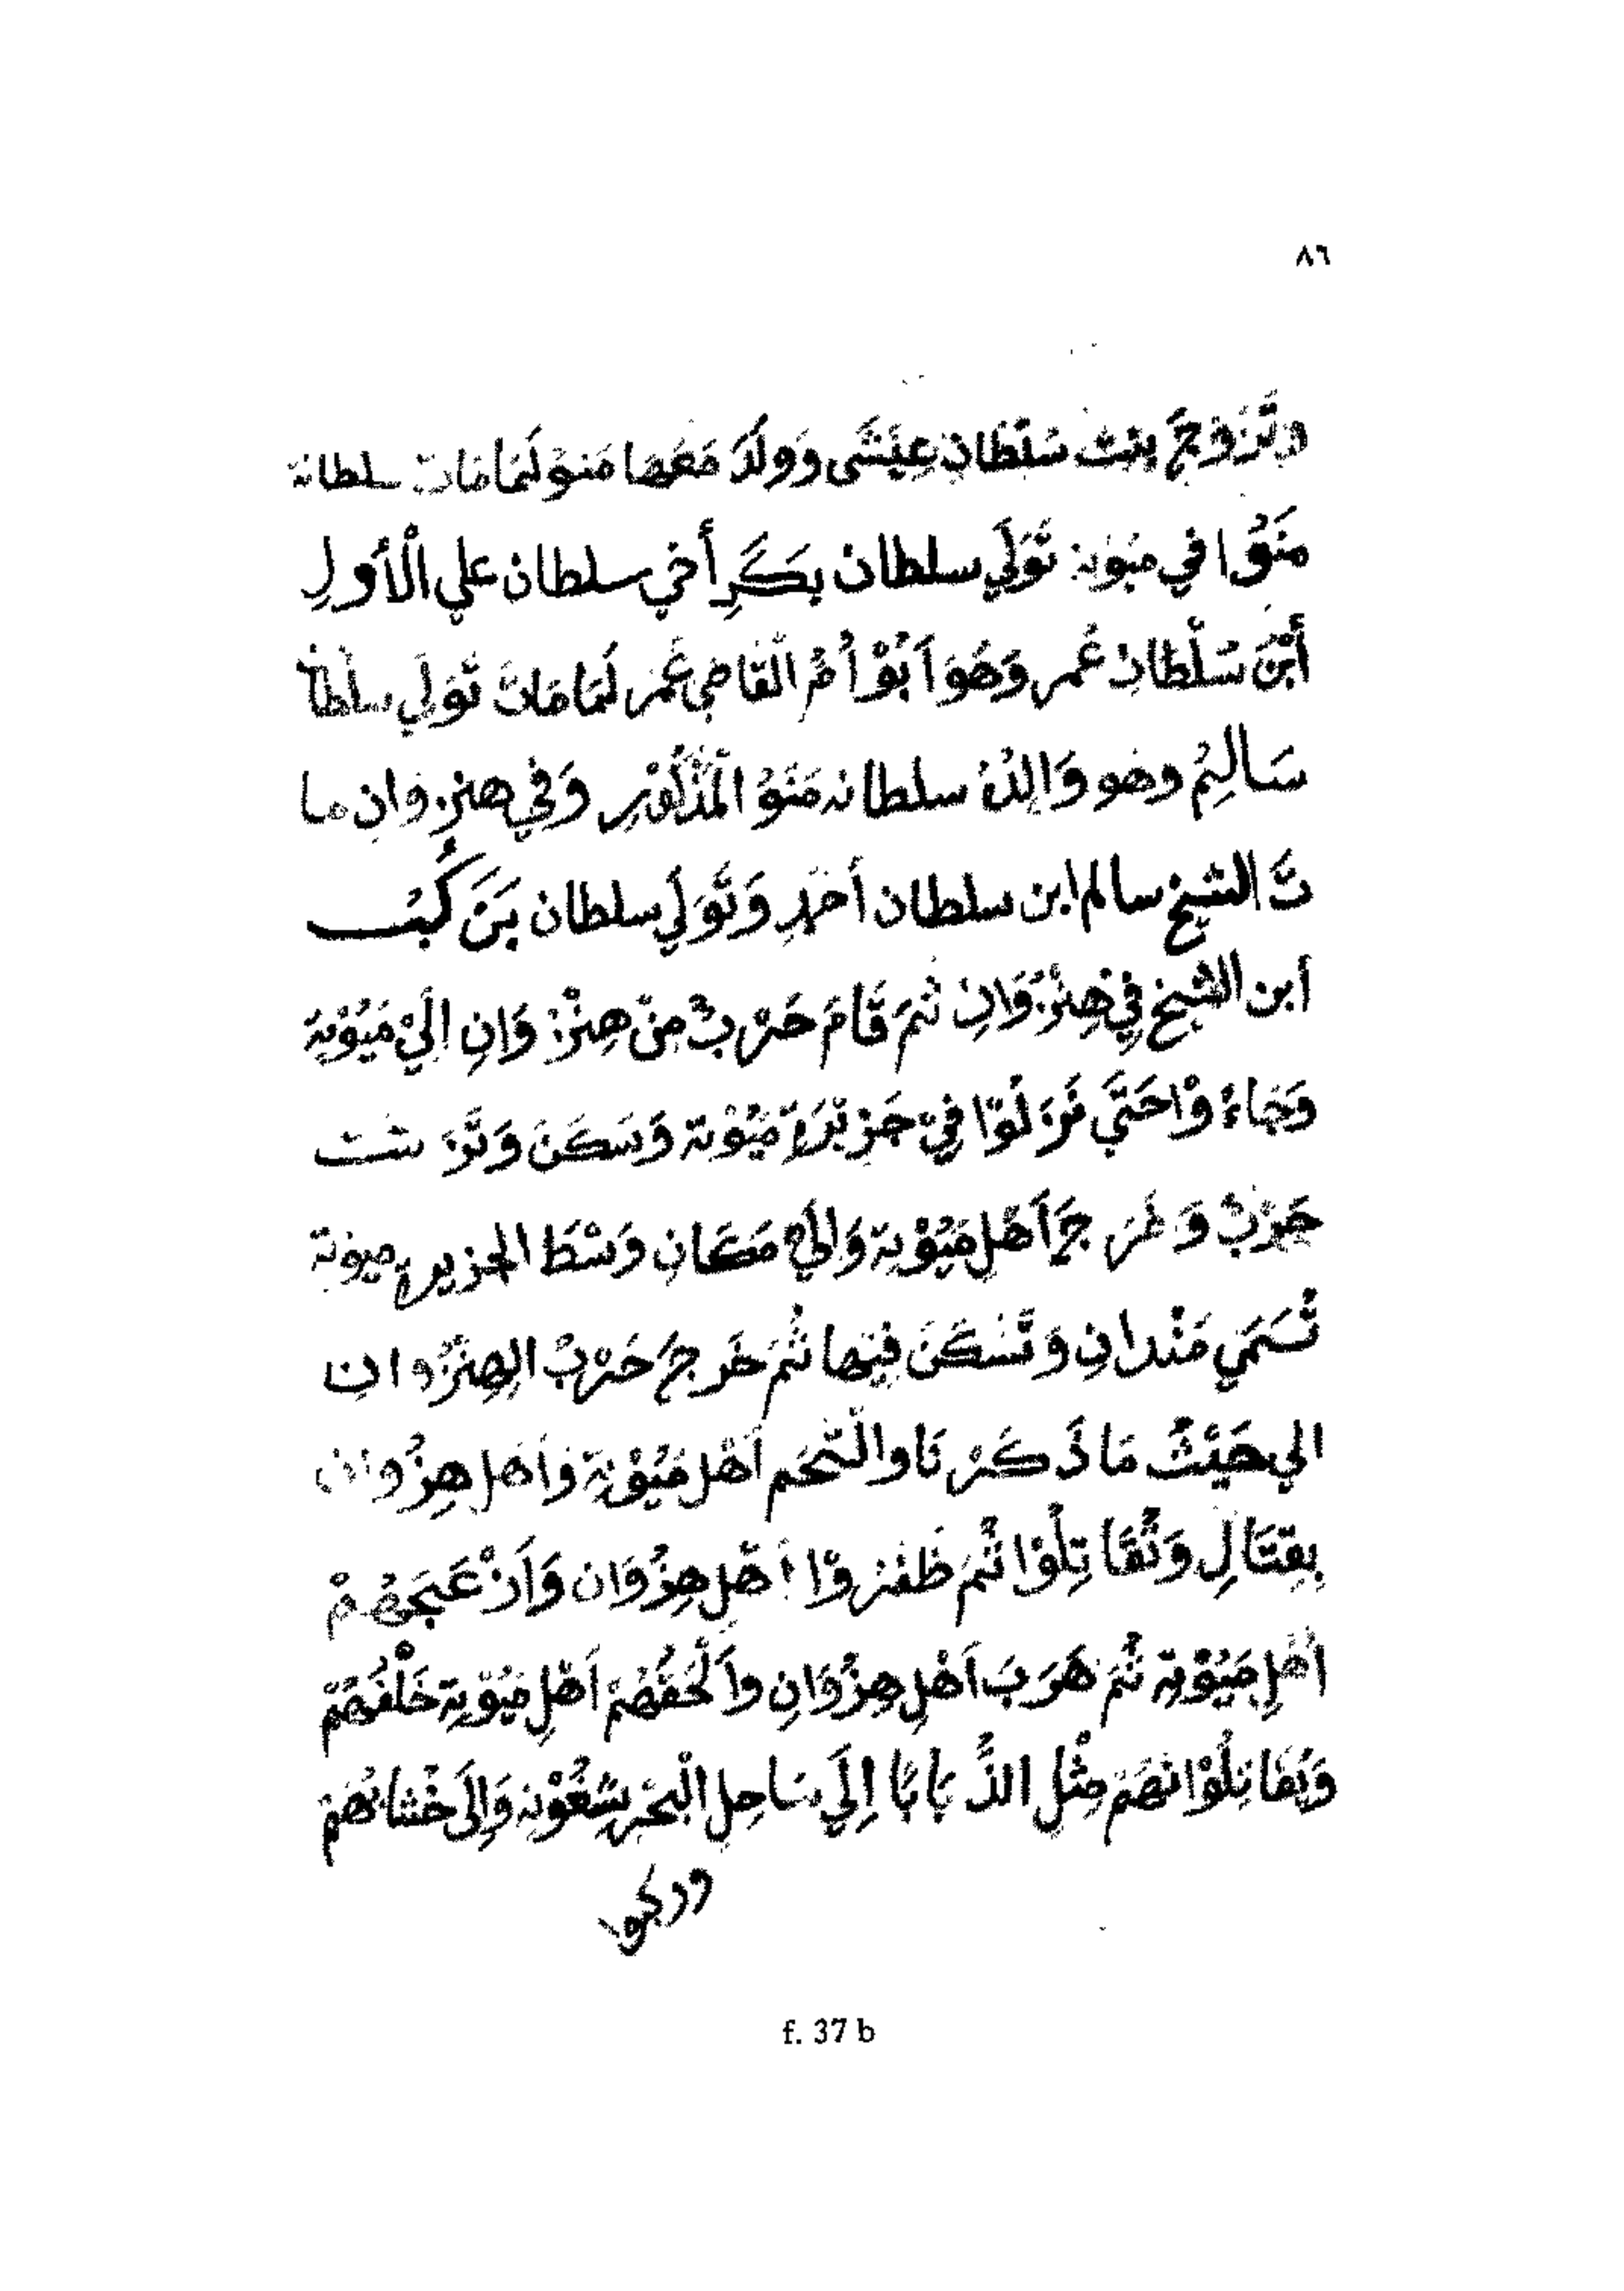 ٨٦
وتَزَوَجَ بِنْت سُلْطَانِ عِيْسَى وَوَلَدَ مَعَهَا مَنَوْ لَمَا مَاتَ سلطانة
مَنَوُا في مَيُوْنَة تَوَلَي سلطان بكَرِ أخي سلطان علي الْأَوَلِ
أبْنَ سُلْطَانِ عُمر وَهُوَ اَبُوْ اُمُ الْقَاضِي عُمَر لَمَا مَاتَ تَوَلَي سلْطاً
سَالِمُ وهو وَالِدُ سلطانه مَنَوُ الْمَذْكُوْرِ وَفِي هنزوان ما
تَ الشيخ سالم ابن سلطان أحْمَدِ وَتَوَلَي سلطان بَنَ كُبُ
أبن الشيخ فِي هِنْزُوَانِ ثُمَ قَامَ حَرْبُ مِنْ هِنْزُوَانِ اِلَيْ مَيُوْنِة
وَجَاءُوْا حَتَي نَزَلُوْا فِيْ جَزِيْرَةِ مَيُوْنة وَسَكَنَ وَتَر شت
حَرْبُ وَخَرَجَ اَهْلِ مَيُوْنة وَالِي مَكَانِ وَسْطَ الجزيرة ميونة
تُسَمَي مَنْدانِ وَتَسْكَنَ فِيْها ثُمَ خَرجَ حَرْبُ الهِنْزُوانِ
الي حَيْثُ مَا ذَكَرْنَا والتْحَم اَهْل مَيُوْنة وَاَهل هِزُوان
بِقِتَالِ وَتُقَاتِلُوْا ثُمَ ظَفَرُوْا اَهْلِ هِزُوَان وَاَنْ عَجَبَهُمْ
اَهْلِ مَيُوْنة ثُمَ هَرَبَ اَهْلِ هِزُوَانِ واَلْحَقَهُمْ اَهْلِ مَيُوْنِة خَلْفَهُمْ
وَتَقَاتِلُوْا نهَمْ مِثْل الذُبَابًا اِلَي سَاحِلِ الْبَحْرِ شُغُوْنِ وَاِلَى خْشَابُهُمْ
وركبو
f. 37 b